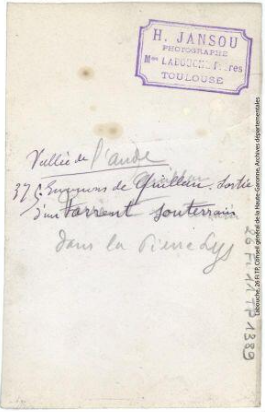 H. JANSOU
PHOTOGRAPHE
Mon LABOUCHE Frères
TOULOUSE
Vallée de l'aude
375 Environs de Quillan. Sortie
d'un torrent souterrain
dans la Pierre Lys
26 FI 11 TP 1339
Labouche, 26 Fi TP, Conseil général de la Haute-Garonne, Archives départementales